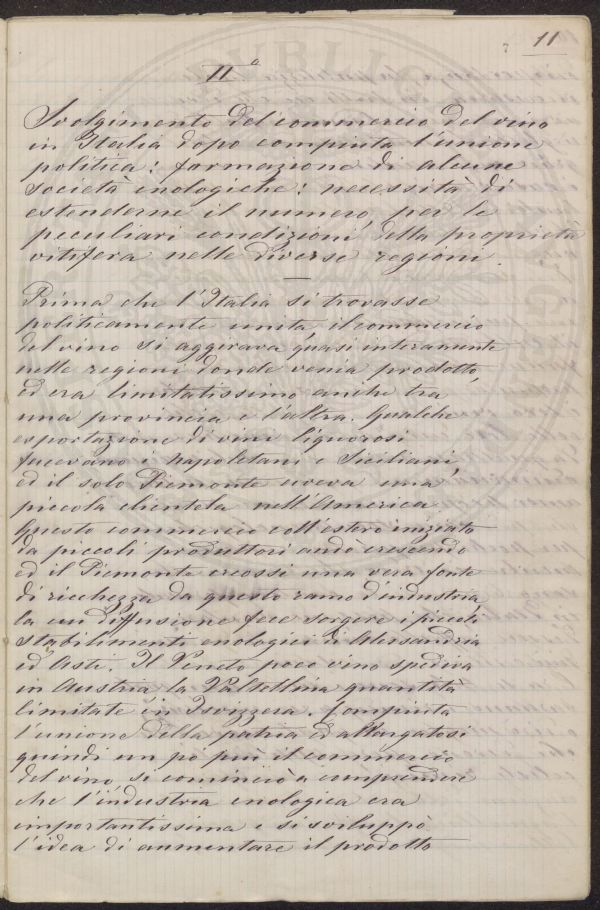 11
II.a
Svolgimento del commercio del vino
in Italia dopo compiuta l'unione
politica: formazione di alcune
società enologiche: necessità di
estenderne il numero, per le
peculiari condizioni della proprietà
vitifera nelle diverse regioni.
Prima che l'Italia si trovasse
politicamente unita il commercio
del vino si aggirava quasi interamente
nelle regioni donde venia prodotto,
ed era limitatissimo anche tra
una provincia e l'altra. Qualche
esportazione di vini liquorosi
facevano i Napoletani e Siciliani,
ed il solo Piemonte aveva una
piccola clientela nell'America.
Questo commercio coll'estero iniziato
da piccoli produttori andò crescendo
ed il Piemonte creossi una vera fonte
di ricchezza da questo ramo d'industria,
la cui diffusione fece sorgere i piccoli
stabilimenti enologici di Alessandria
ed Asti. Il Veneto poco vino spediva
in Austria la Valtellina quantità
limitate in Isvizzera. Compiuta
l'unione della patria ed allargatosi
quindi un pò più il commercio
del vino si cominciò a comprendere
che l'industria enologica era
importantissima e si sviluppò
l'idea di aumentare il prodotto